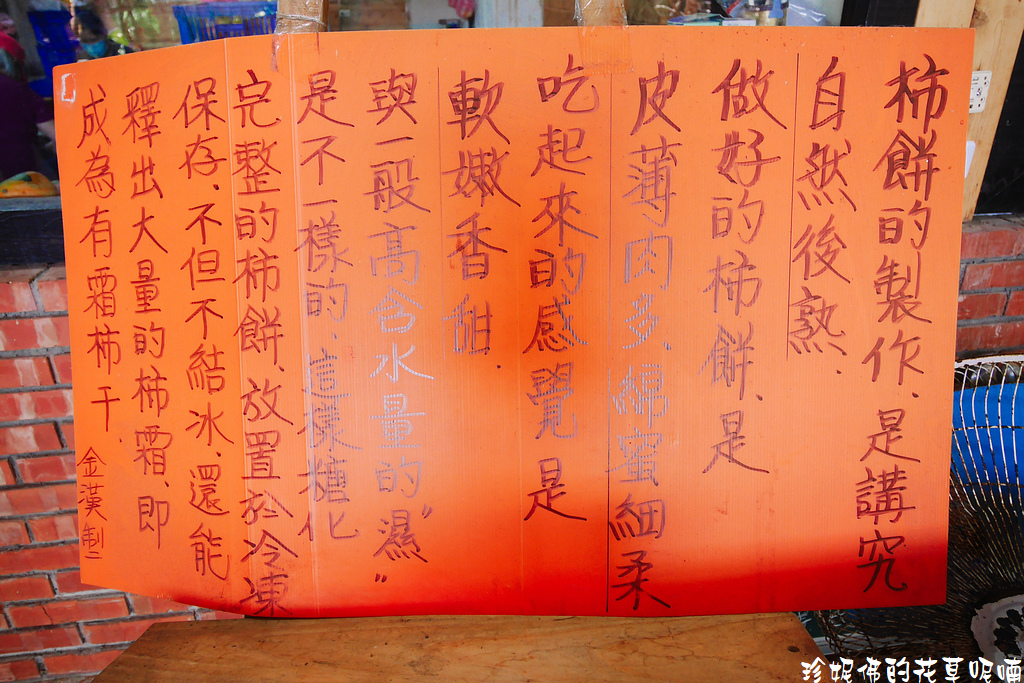 柿餅的製作、是講究
自然然後熟、
做好的柿餅、是
皮薄肉多、綿蜜細柔
吃起來的感覺 是
軟嫩香甜.
與一般高含水量的"濕"
是不一樣的、這樣糖化
完整的柿餅、放置於冷凍
保存、不但不結冰、還能
釋出大量的柿霜、即
成為有霜柿干、
金漢製
珍妮佛的花草呢喃